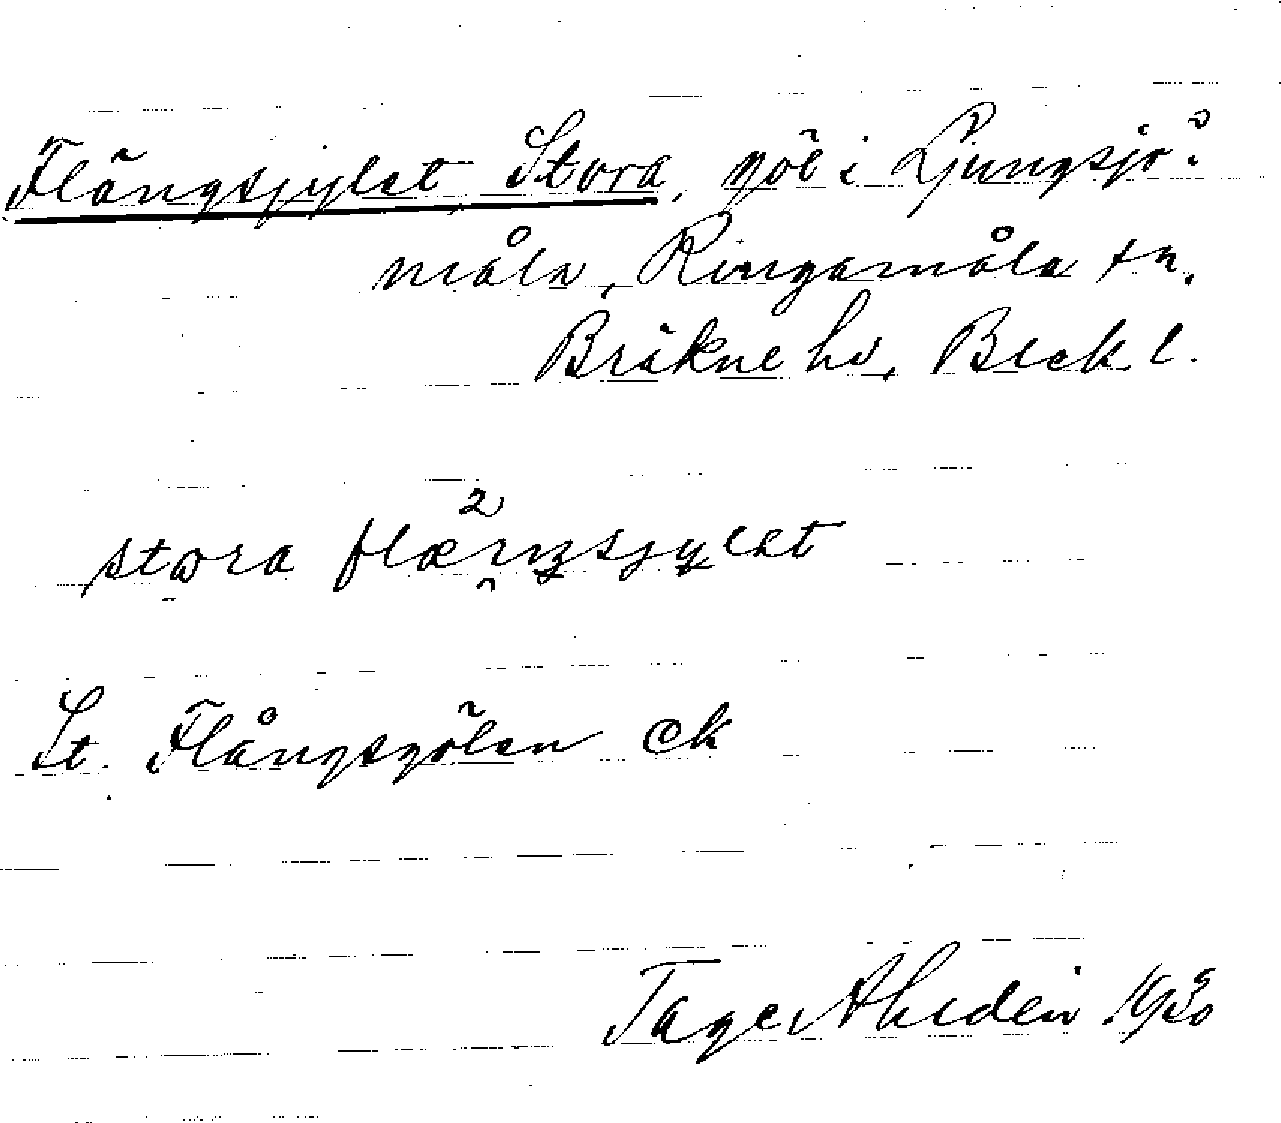 Flängsjylet, Stora, göl i Ljungsjö-
måla, Ringamåla sn.
Bräkne hd, Blek. l.
2
stora flæŋsjylet
St. Flångsgölen ek
Tage Ahldén 1930